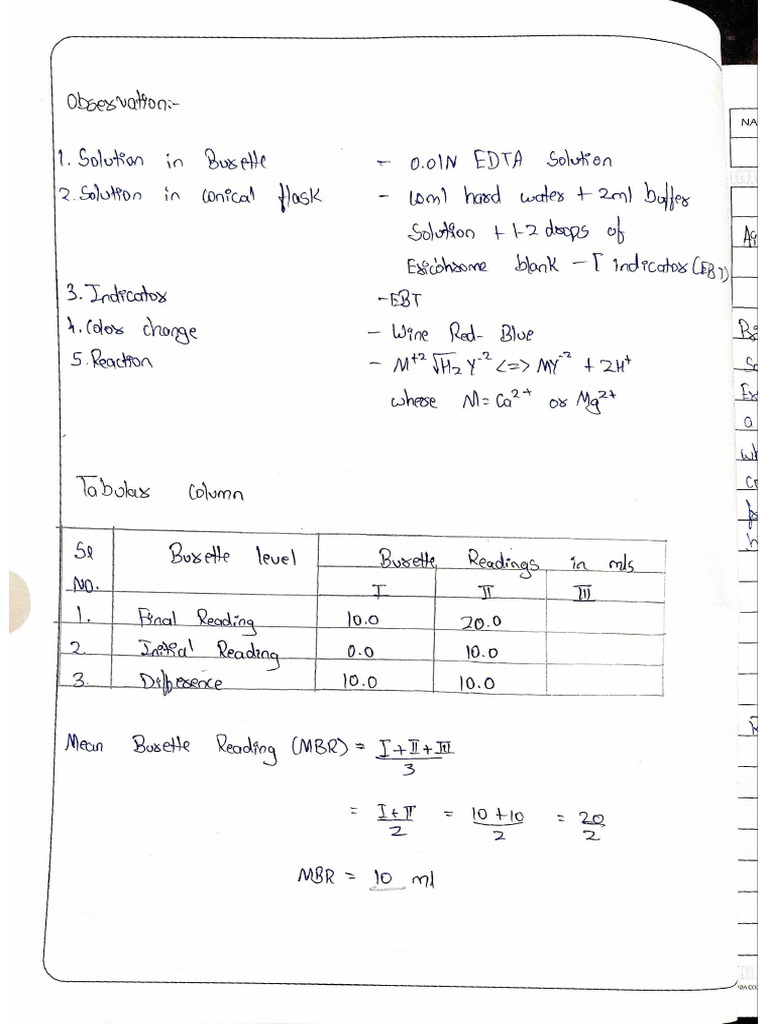 Observation:-
1. Solution in Burette - 0.01N EDTA Solution
2. Solution in conical flask - 10ml hard water + 2ml buffer
Solution + 1-2 drops of
Ericohrome blank - T indicator (EBT)
3. Indicator - EBT
4. Color change - Wine Red - Blue
5. Reaction - M+2 H2Y-2 <=> MY-2 + 2H+
where M = Ca2+ or Mg2+
Tabular column
Sl Burette level Burette Readings in mls
NO. I II III
1. Final Reading 10.0 20.0
2. Initial Reading 0.0 10.0
3. Difference 10.0 10.0
Mean Burette Reading (MBR) = I + II + III / 3
= I + II / 2 = 10 + 10 / 2 = 20 / 2
MBR = 10 ml
NA